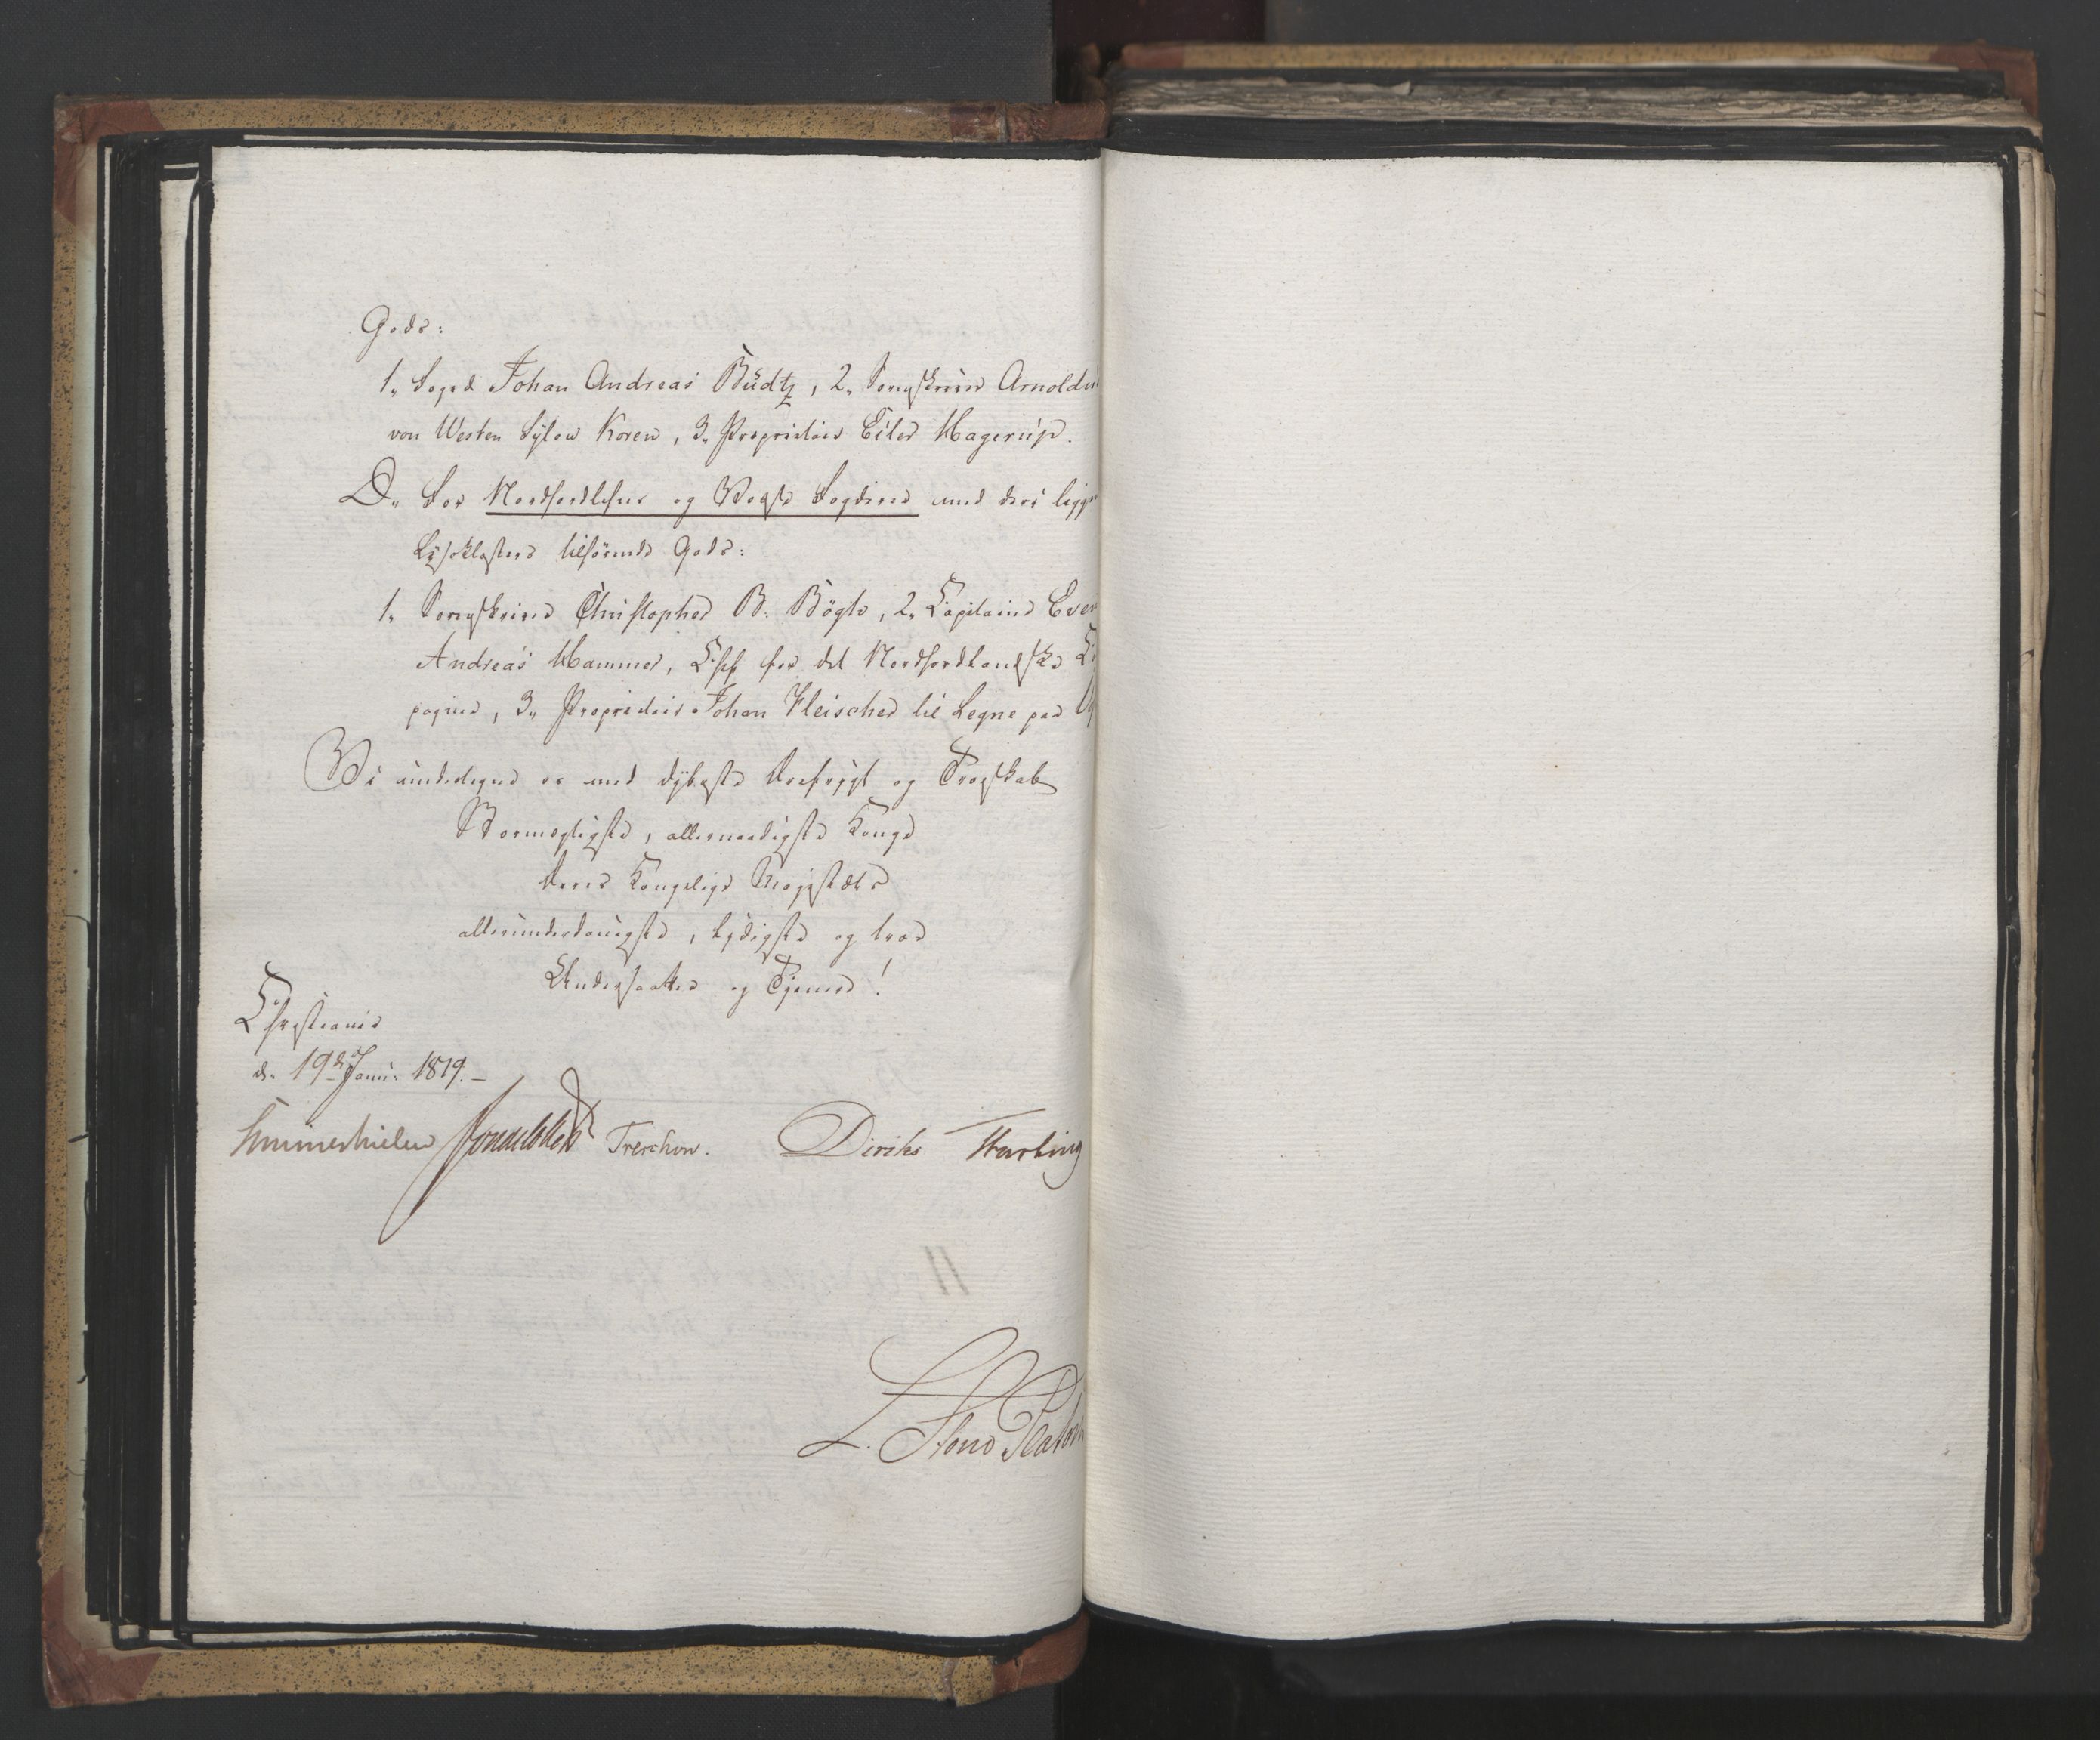 Gods:
1, Foged Johan Andreas Büdtz, 2, Sorenskriver Arnoldus
von Westen Sylow Koren, 3, Proprietair Eiler Hagerup.
D, For Nordhordlehns og Voss's Fogderie med deri liggende
Lysekloster tilhörende Gods:
1, Sorenskriver Christopher B. Bögh, 2, Capitaine Even
Andreas Hammer, Chef for det Nordhordlandske
pagnie, 3, Proprietair Johan Fleischer til Legne paa
Vi undertegne os med dybeste Ærefrygt og Troeskab
Stormægtigste, allernaadigste Konge
Deres Kongelige Majestæts
allerunderdanigste, lydigste og troe
Undersaatter og Tjenere!
Christiania
d. 19de Janu: 1819.–
Sommerhielm Treschow. Diriks
L.